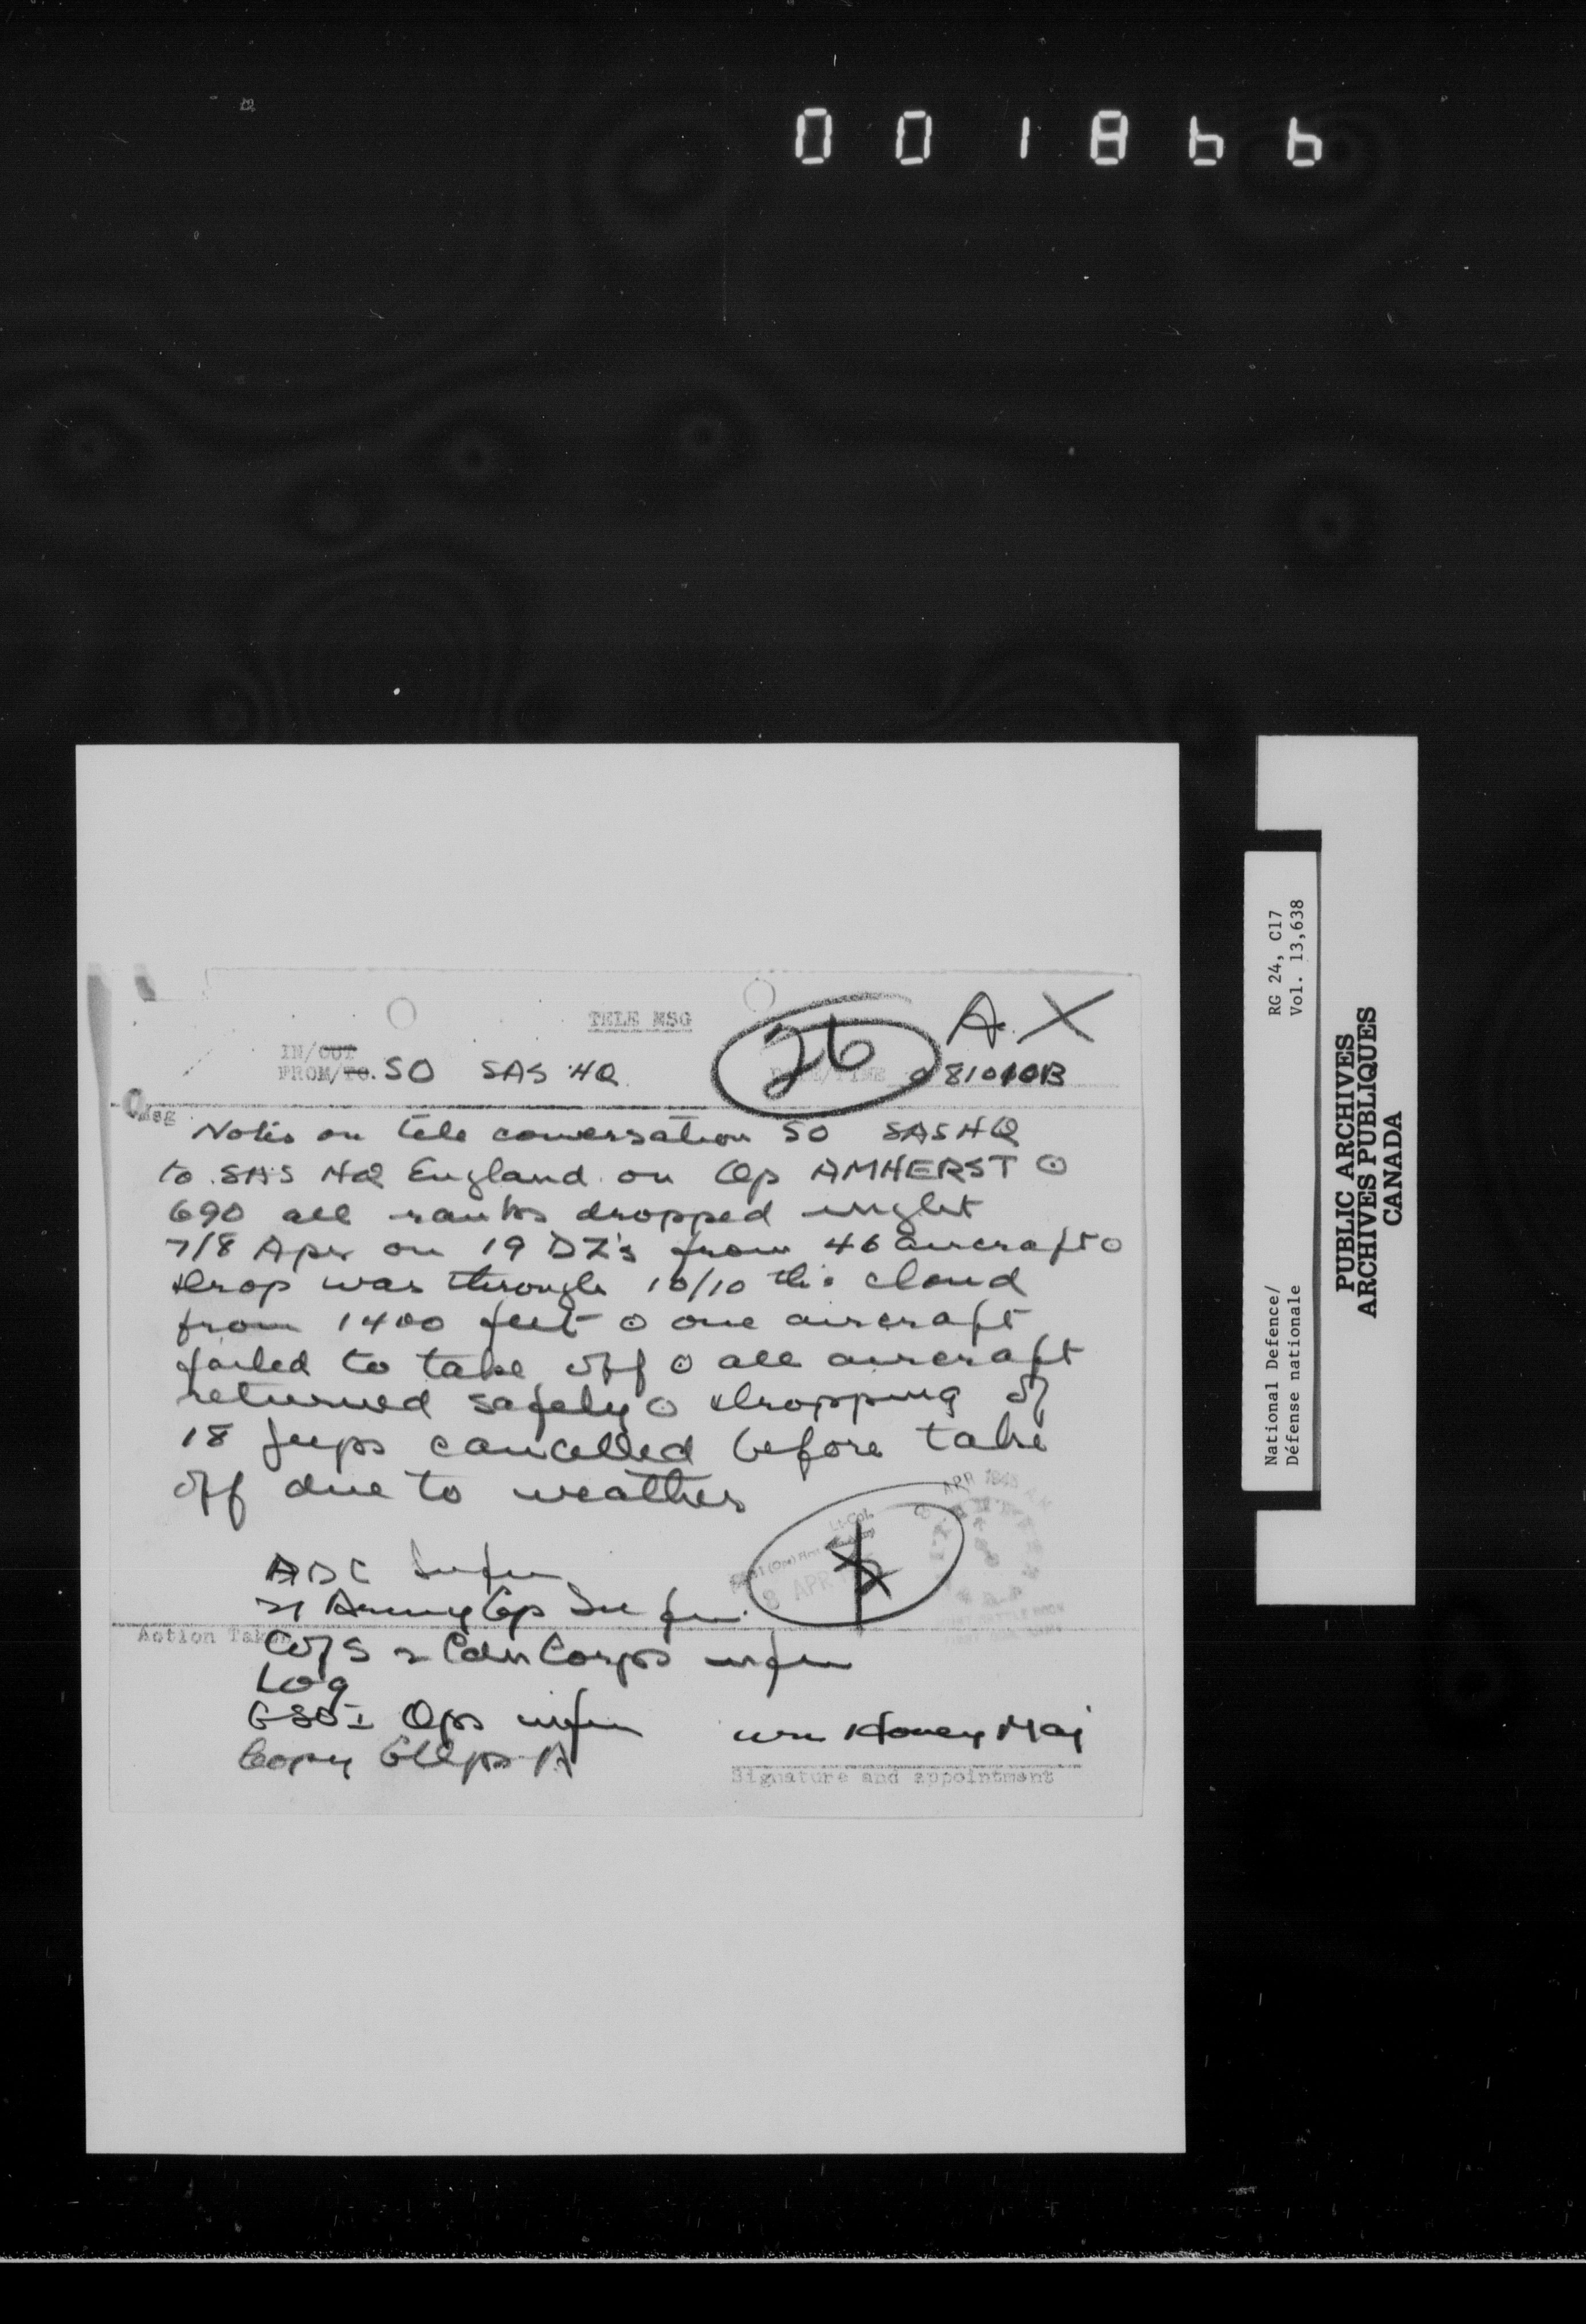 001866
TELE MSG
26
A. X
IN/OUT
FROM/TO. SO SAS HQ
DATE/TIME 081010B
Msg
Notes on tele conversation SO SAS HQ
to SAS HQ England on Op AMHERST ⊙
690 all ranks dropped night
7/8 Apr on 19 DZ's from 46 aircraft ⊙
drop was through 10/10 ths cloud
from 1400 feet ⊙ one aircraft
failed to take off ⊙ all aircraft
returned safely ⊙ dropping of
18 jeeps cancelled before take
off due to weather
APR 1945
Lt-Col.
8 APR
ADC Infm
21 Army Gp Infm.
Action Taken
C of S 2 Cdn Corps infm
Log
GSO I Ops infm
Copy G Ops A
Wm Honey Maj
Signature and appointment
RG 24, C17
Vol. 13,638
National Defence/
Défense nationale
PUBLIC ARCHIVES
ARCHIVES PUBLIQUES
CANADA